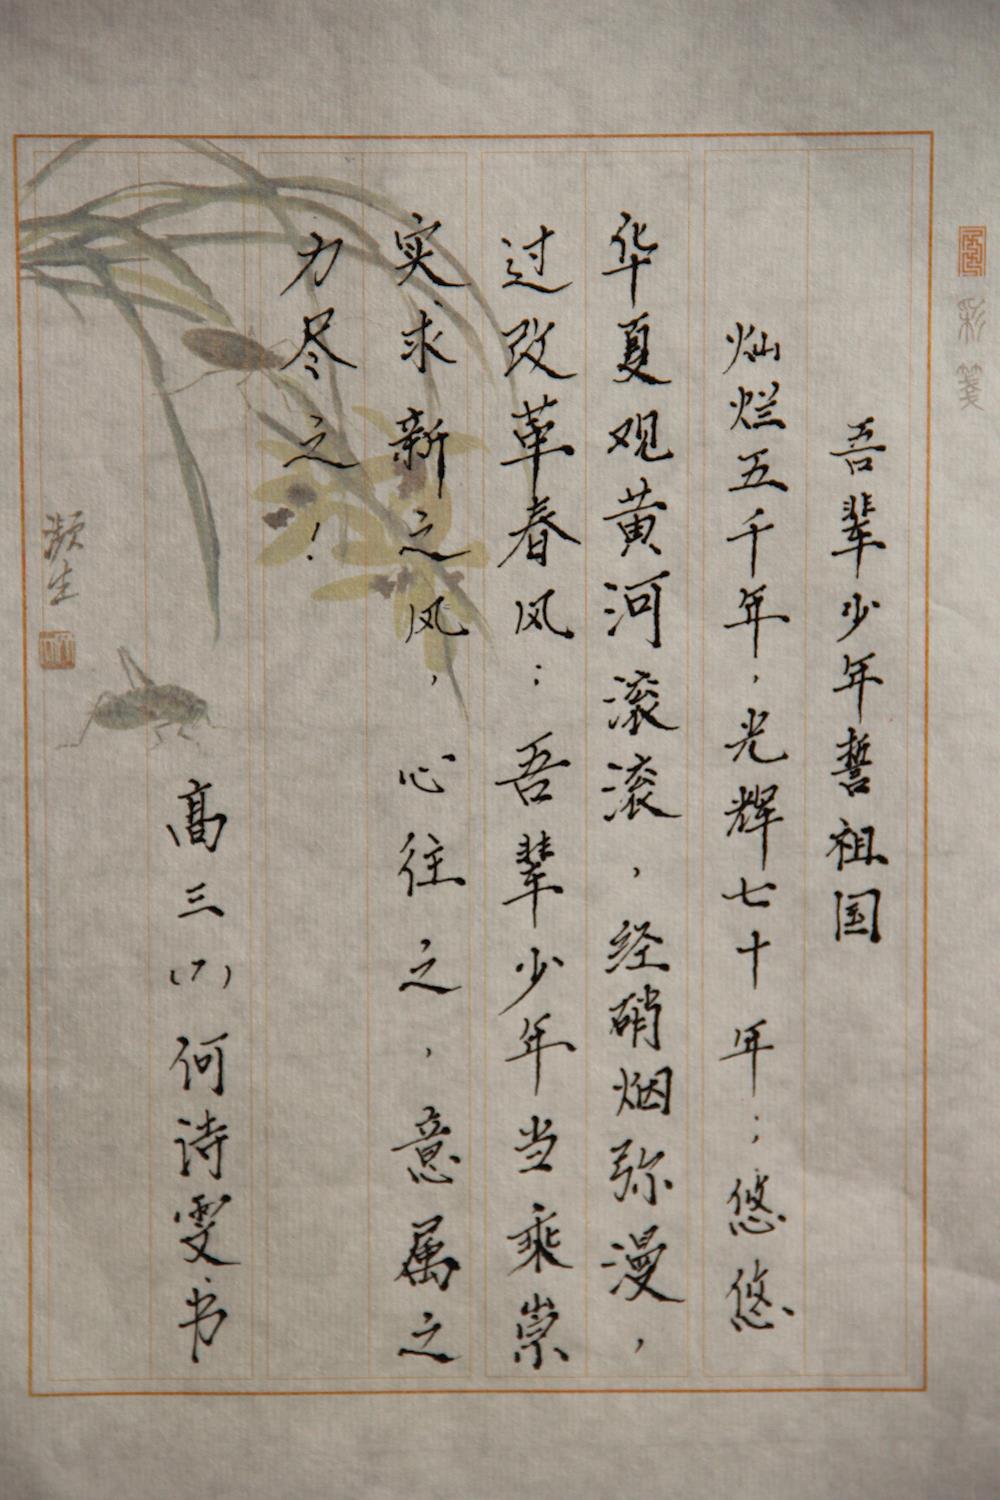 吾辈少年誓祖国
灿烂五千年，光辉七十年；悠悠
华夏观黄河滚滚，经硝烟弥漫，
过改革春风；吾辈少年当乘崇
实求新之风，心往之，意属之
力尽之！
高三（7）何诗雯书
彩笺
濒生